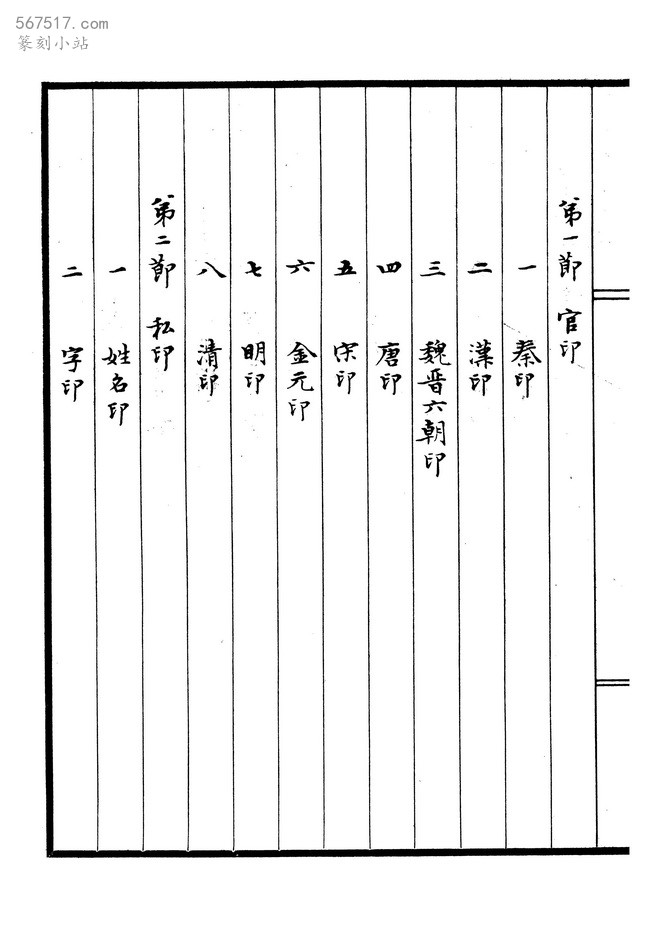 567517.com
篆刻小站
第一節 官印
一 秦印
二 漢印
三 魏晋六朝印
四 唐印
五 宋印
六 金元印
七 明印
八 清印
第二節 私印
一 姓名印
二 字印